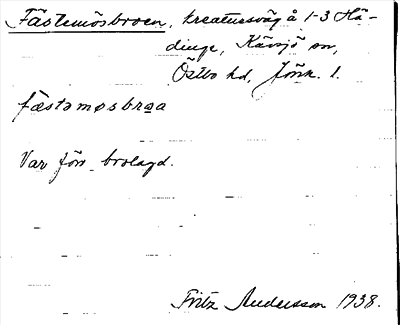 Fästemösbroen, kreatursväg å 1-3 Hä-
dinge, Kävsjö sn,
Östbo hd, Jönk. l.
fæstəmøsbroa
Var förr brolagd.
Fritz Andersson 1938.